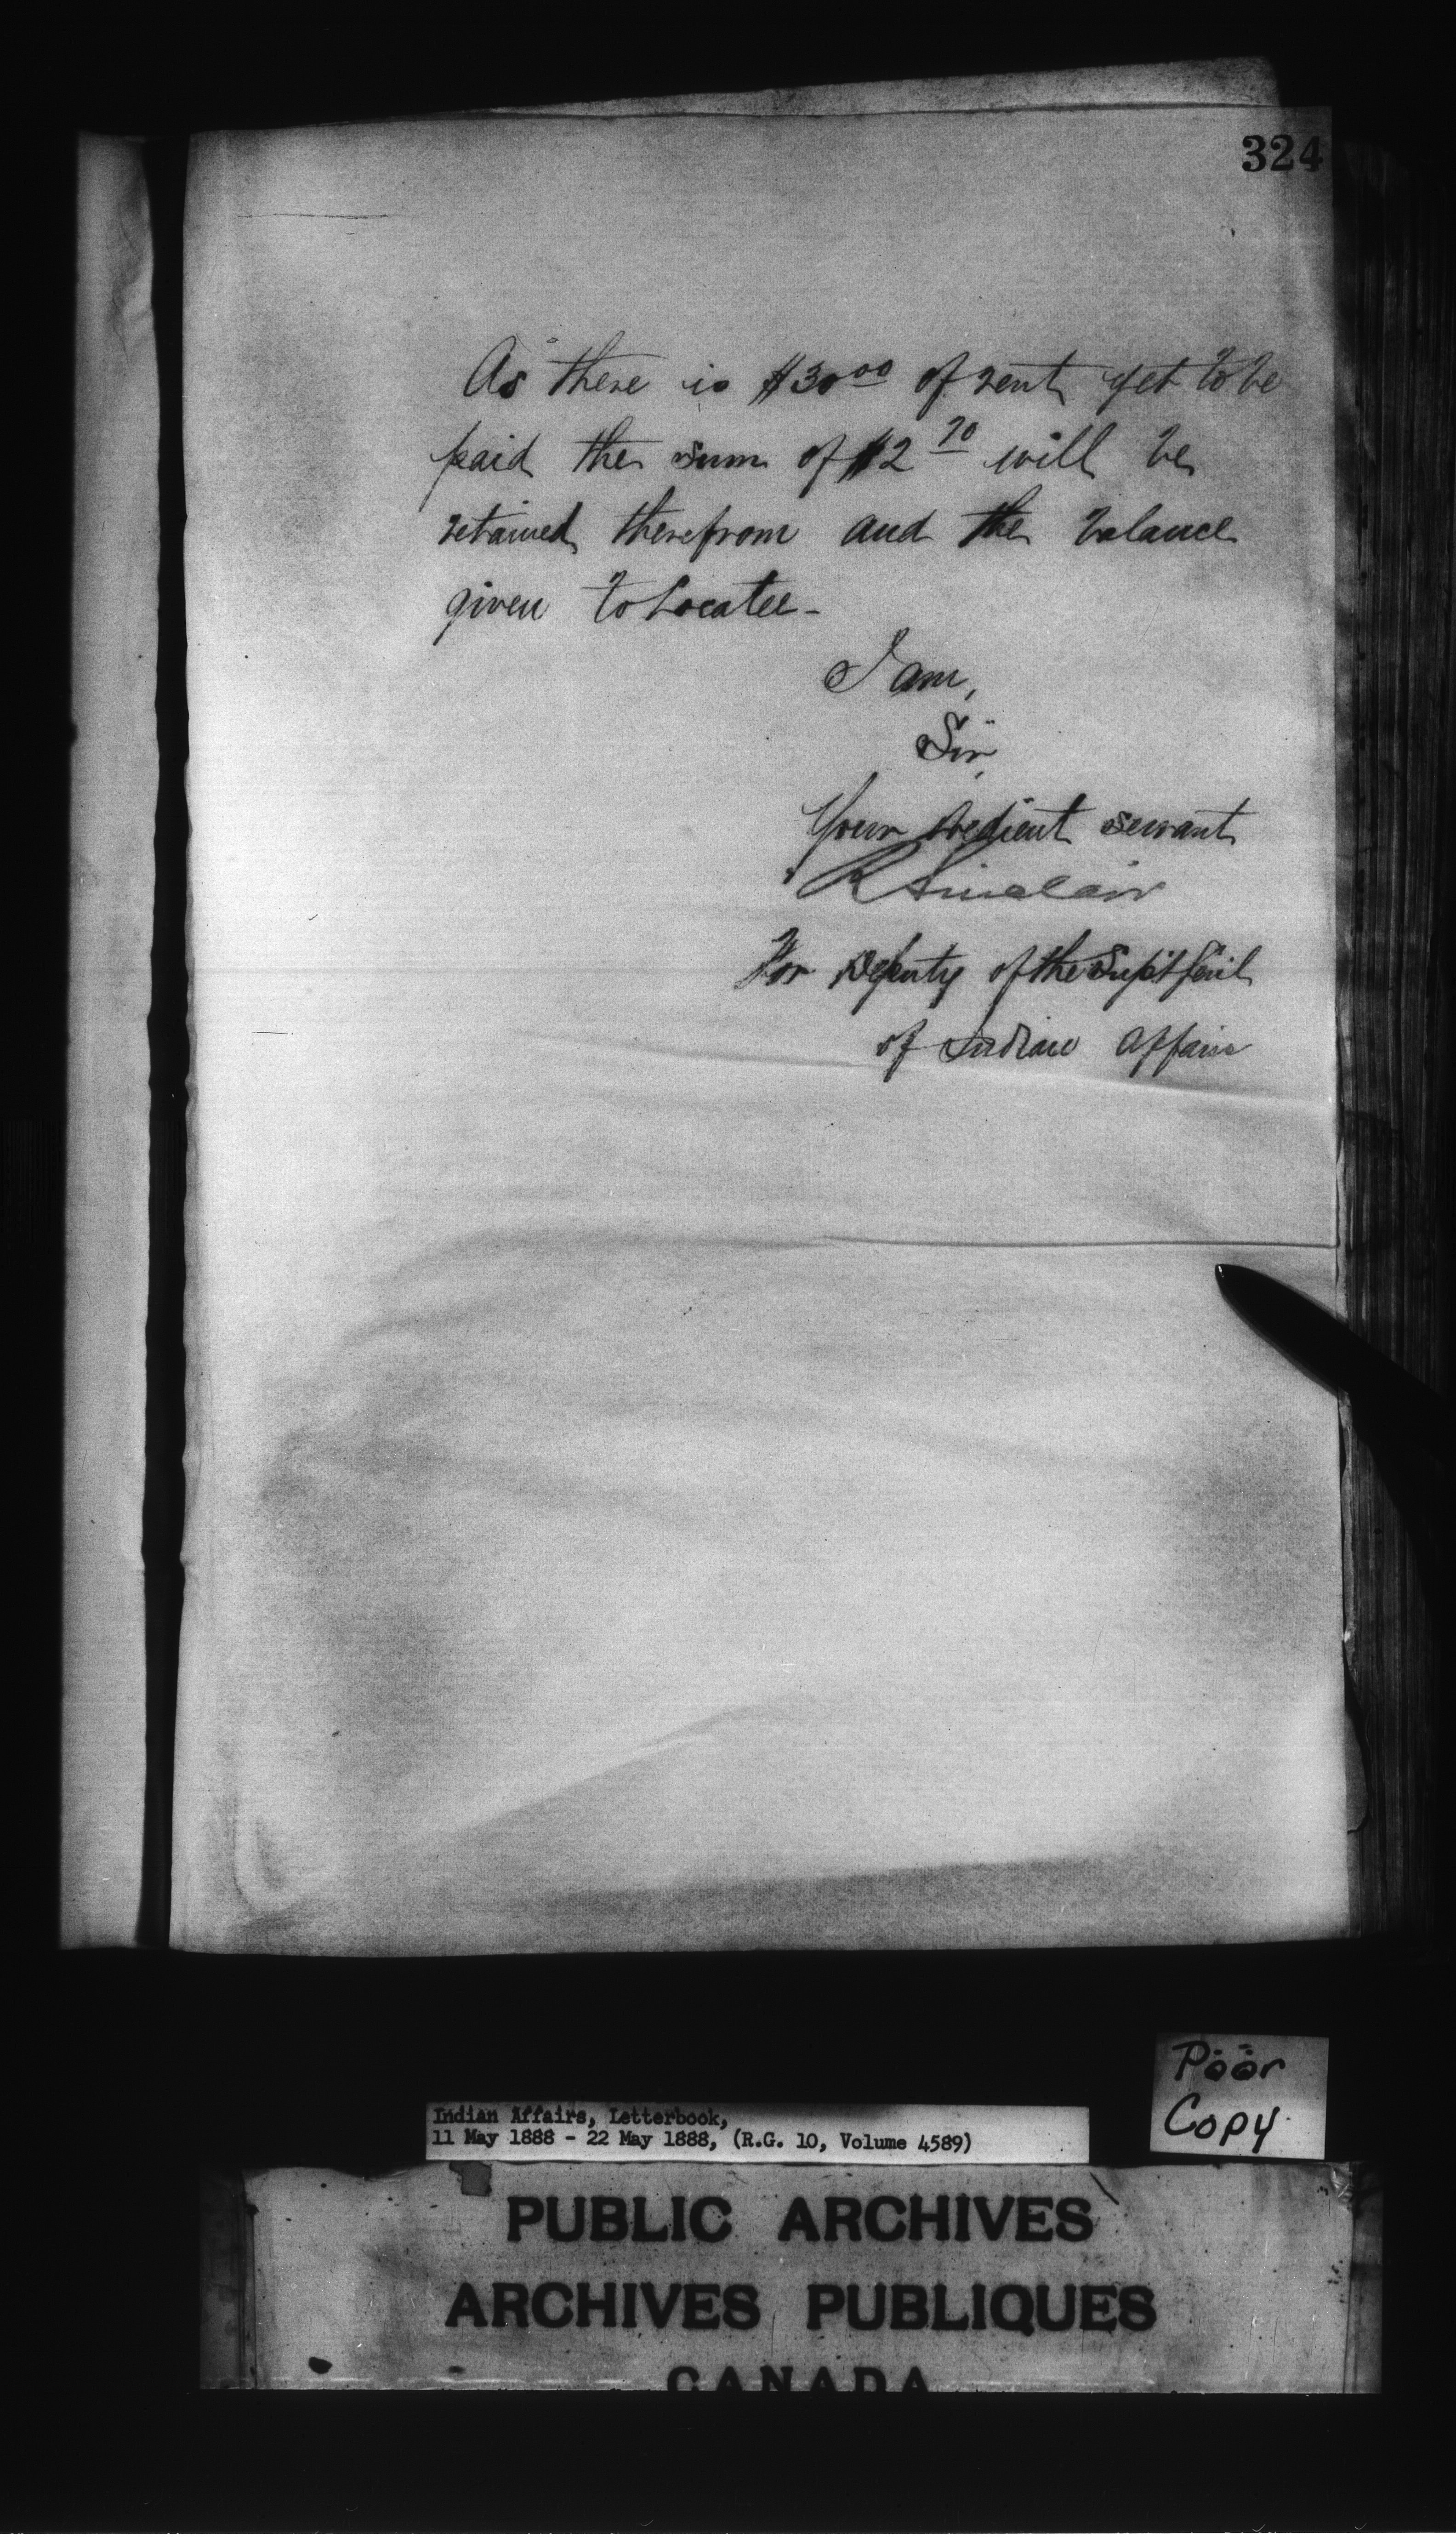 324
As there is $30 00 of rent yet to be
paid the sum of $2 70 will be
retained therefrom and the balance
given to Locatee -
I am,
Sir,
Your obedient servant
R Sinclair
For Deputy of the Supt Genl
of Indian Affairs
Poor
Copy
Indian Affairs, Letterbook,
11 May 1888 - 22 May 1888, (R.G. 10, Volume 4589)
PUBLIC ARCHIVES
ARCHIVES PUBLIQUES
CANADA